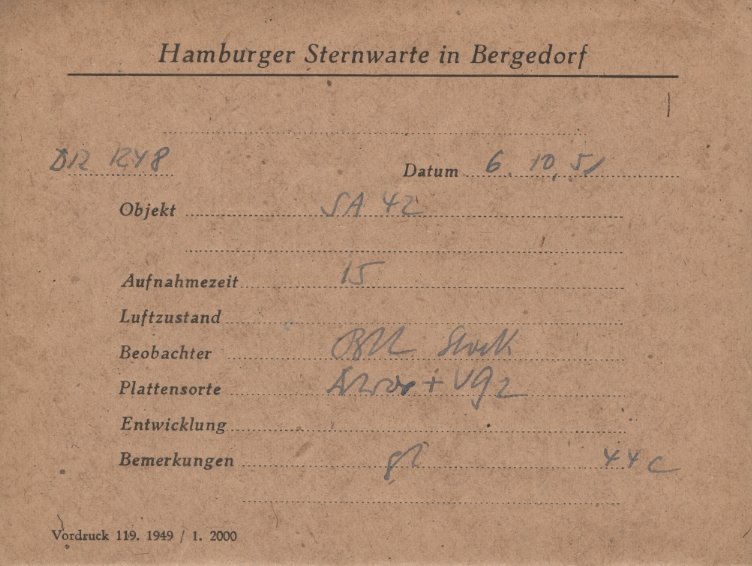 Hamburger Sternwarte in Bergedorf
Datum 6. 10. 51
Objekt SA 42
Aufnahmezeit 15
Luftzustand
Beobachter Stock
Plattensorte + VG2
Entwicklung
Bemerkungen 44c
Vordruck 119. 1949 / 1. 2000